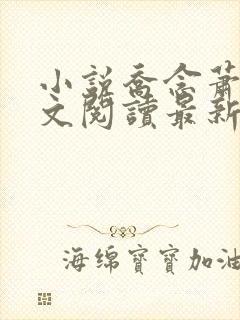 小說喬念蕭
文閱讀最新
海绵寶寶加油